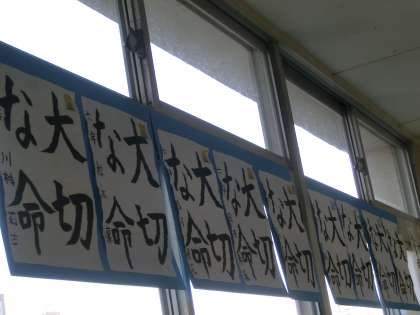 大切
な命
大切
な命
大切
な命
大切
な命
大切
な命
大切
な命
大切
な命
大切
な命